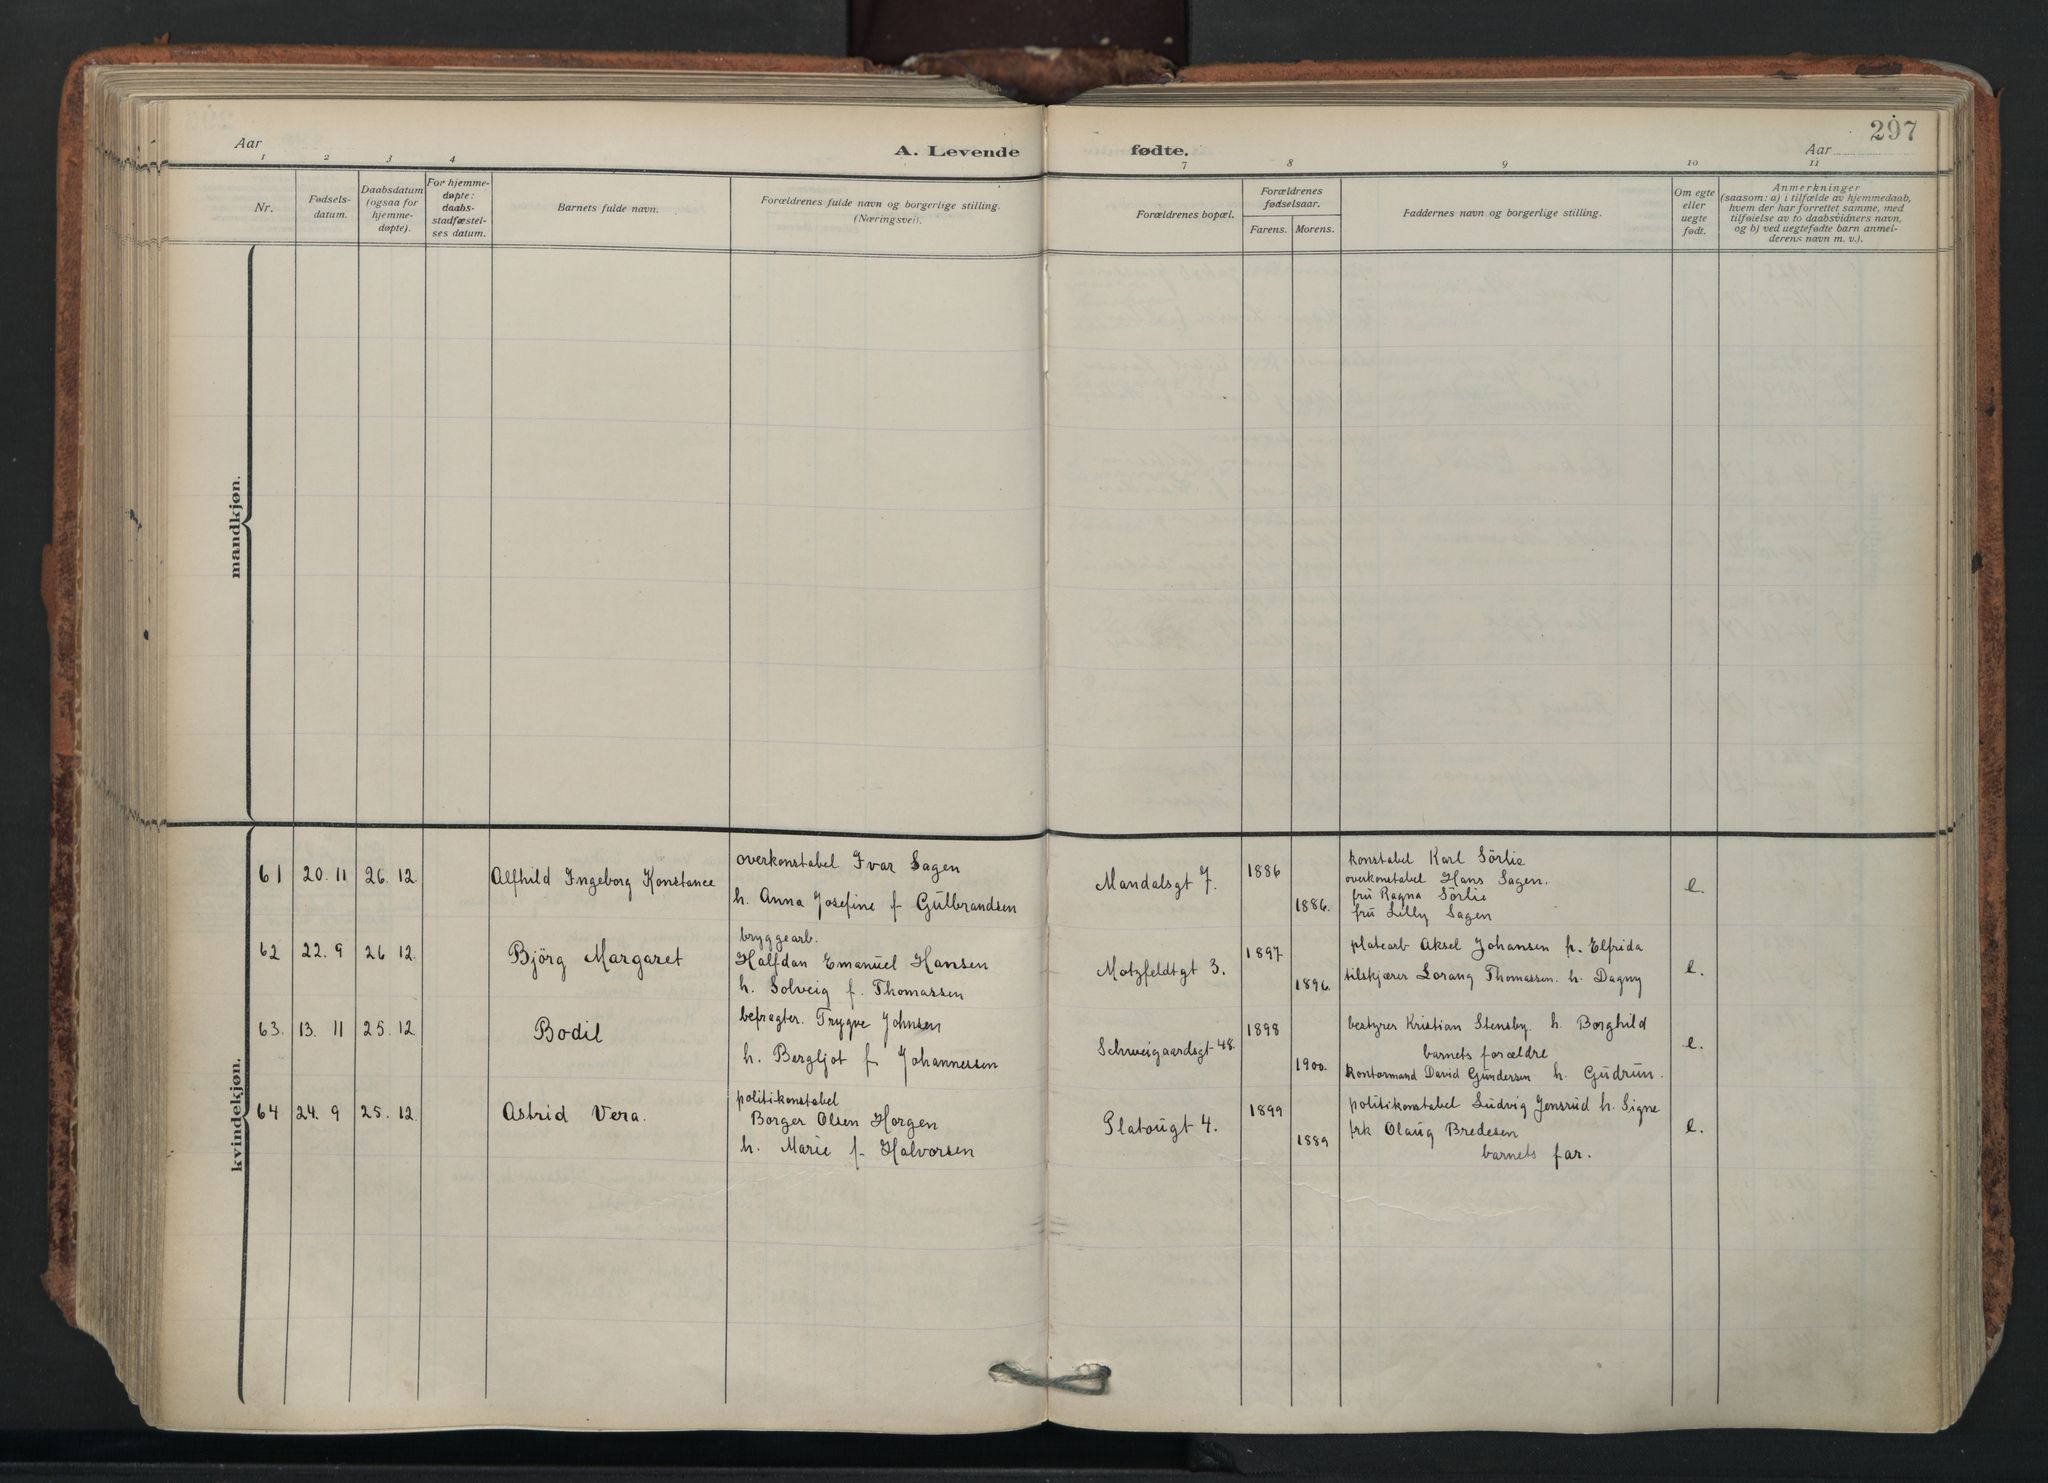 297
Aar
A. Levende fødte.
Aar
1 2 3 4 7 8 9 10 11
Nr.
Fødsels-
datum.
Daabsdatum
(ogsaa for
hjemme-
døpte).
For hjemme-
døpte:
daabs-
stadfæstel-
ses datum.
Barnets fulde navn.
Forældrenes fulde navn og borgerlige stilling.
(Næringsvei).
Forældrenes bopæl.
Forældrenes
fødselsaar.
Farens. Morens.
Faddernes navn og borgerlige stilling.
Om egte
eller
uegte
født.
Anmerkninger
(saasom: a) i tilfælde av hjemmedaab,
hvem der har forrettet samme, med
tilføielse av to daabsvidners navn,
og b) ved uegtefødte barn anmel-
derens navn m. v.).
mandkjøn.
kvindekjøn.
61 20. 11 26. 12. Alfhild Ingeborg Konstance
overkonstabel Ivar Sagen
h. Anna Josefine f. Gulbrandsen
Mandalsgt 7. 1886
1886.
konstabel Karl Sörlie
overkonstabel Hans Sagen.
fru Ragna Sörlie
fru Lilly Sagen
e.
62 22. 9 26 12. Björg Margaret
bryggearb.
Halfdan Emanuel Hansen
h. Solveig f. Thomassen
Motzfeldtgt 3. 1897
1896.
platearb Aksel Johansen h. Elfrida
tilskjærer Lorang Thomassen. h. Dagny
e.
63. 13. 11 25. 12. Bodil
befragter. Trygve Johnsen
h. Bergljot f Johannessen
Schweigaardsgt 48. 1898
1900.
bestyrer Kristian Stensby. h. Borghild
barnets forældre
kontormand David Gundersen h. Gudrun.
e.
64 24. 9 25. 12. Astrid Vera.
politikonstabel
Borger Olsen Horgen
h. Marie f. Halvorsen
Platougt 4. 1899
1889
politikonstabel Ludvig Jensrud h. Signe
frk Olaug Bredesen
barnets far.
e.